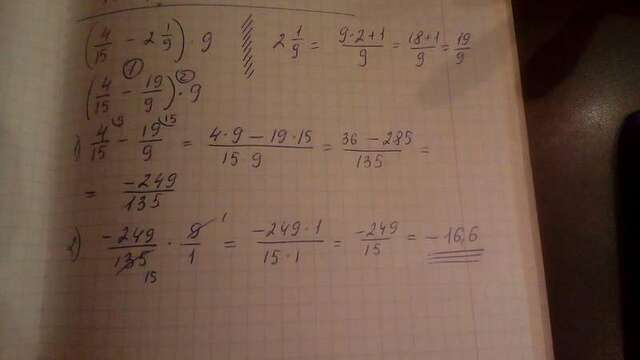 (4/15 - 2 1/9) · 9
2 1/9 = (9·2+1)/9 = (18+1)/9 = 19/9
(4/15 - 19/9) · 9
① ②
1) 4/15 - 19/9 = (4·9 - 19·15)/(15 9) = (36 - 285)/135 =
9 15
= -249/135
2) -249/135 · 9/1 = (-249·1)/(15·1) = -249/15 = -16,6
15 1